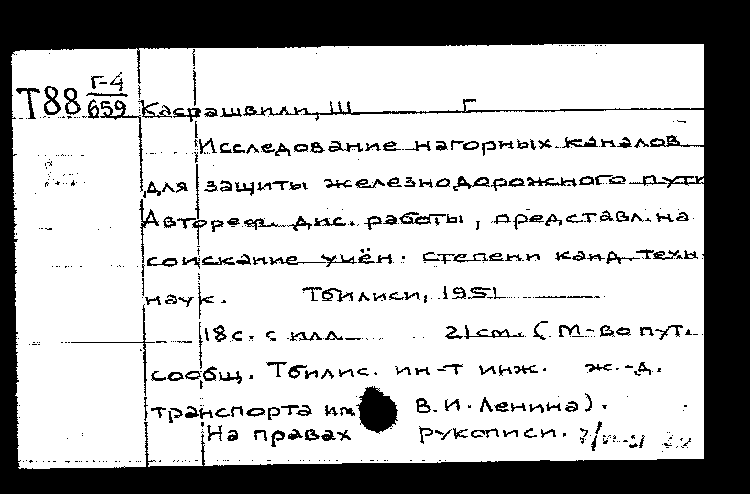 Т88 Г-4
659 Касрашвили, Ш Г
Исследование нагорных каналов
для защиты железнодорожного пути
Автореф. дис. работы, представл. на
соискание учён. степени канд. техн.
наук. Тбилиси, 1951
18 с. с илл. 21 см. (М-во пут.
сообщ. Тбилис. ин-т инж. ж.-д.
транспорта им В. И. Ленина).
На правах рукописи.